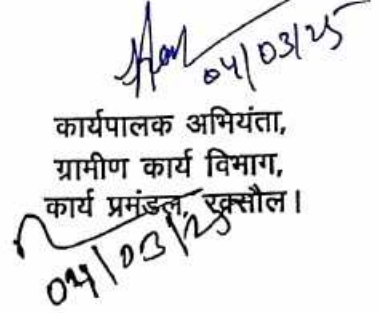 04/03/25
कार्यपालक अभियंता,
ग्रामीण कार्य विभाग,
कार्य प्रमंडल, रक्सौल।
04/03/25